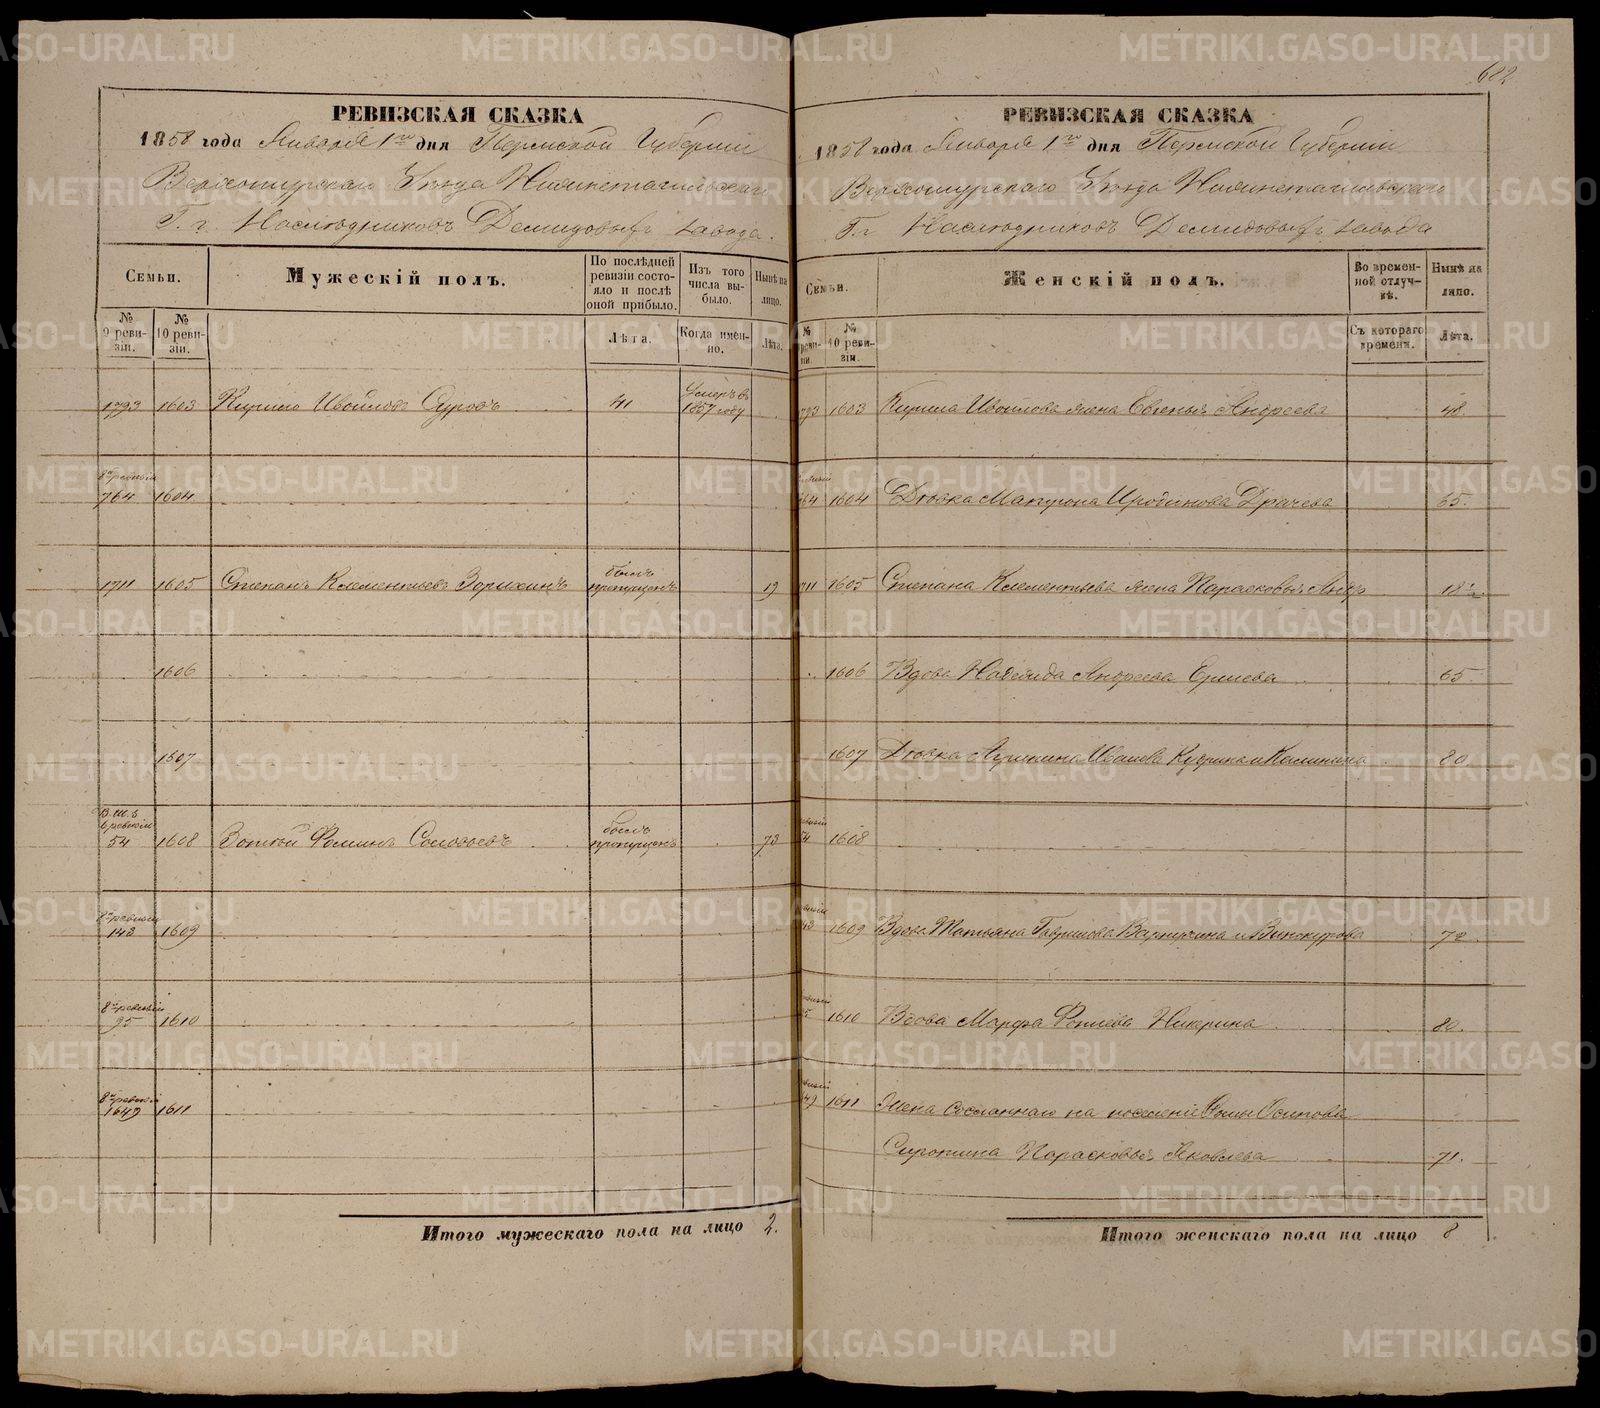 682
РЕВИЗСКАЯ СКАЗКА
1858 года Января 1го дня Пермской Губернии
Верхотурскаго Уезда Нижнетагильскаго
Г. г. Наследниковъ Демидовыхъ завода.
Семьи.
Мужескій полъ.
По послѣдней ревизіи состояло и послѣ оной прибыло.
Изъ того числа выбыло.
Нынѣ на лицо.
№ 9 ревизіи.
№ 10 ревизіи.
Лѣта.
Когда именно.
Лѣта.
1793 1603 Кирило Ивойловъ Суровъ 41 Умеръ въ 1857 году
8й ревизіи 764 1604
1711 1605 Степанъ Клементьевъ Зорихинъ былъ пропущенъ 19
1606
1607
54 1608 Зотей Фоминъ Соловьевъ былъ пропущенъ 73
8й ревизіи 143 1609
8й ревизіи 95 1610
8й ревизіи 1649 1611
Итого мужескаго пола на лицо 2.
РЕВИЗСКАЯ СКАЗКА
1858 года Января 1го дня Пермской Губерніи
Верхотурскаго Уезда Нижнетагильскаго
Г. г. Наследниковъ Демидовыхъ завода
Семьи.
Женскій полъ.
Во временной отлучкѣ.
Нынѣ на лицо.
№ ревизіи.
№ 10 ревизіи.
Съ котораго времени.
Лѣта.
793 1603 Кирила Ивойлова жена Евгенья Андреева 48.
764 1604 Девка Матрона Иродинова Драчева 65.
711 1605 Степана Клементьева жена Парасковья 18½.
1606 Вдова Надежда Андреева Ершева 65.
1607 Девка Ивлиева Кудрина и Калинина 80.
54 1608
143 1609 Вдова Татьяна Гаврилова и Винокурова 72.
1610 Вдова Марфа Фотиева Никрина 80.
1649 1611 Жена сосланнаго на поселеніе Фомы Осипова
Сиротина Парасковья Яковлева 71.
Итого женскаго пола на лицо 8
METRIKI.GASO-URAL.RU